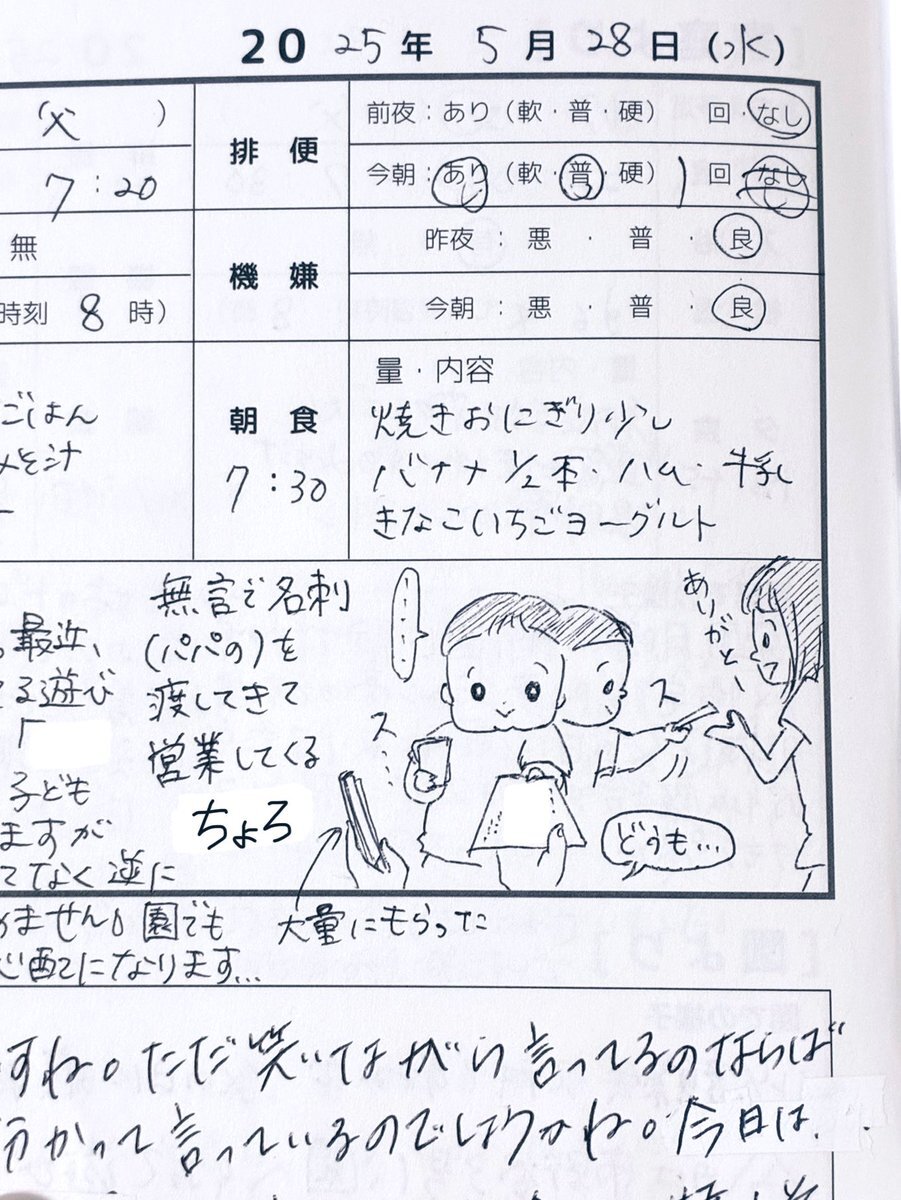 2025年 5月 28日(水)
(父 )
7:20
排便
前夜:あり(軟・普・硬) 回・なし
今朝:あり(軟・普・硬) 1回 なし
無
機嫌
昨夜:悪・普・良
今朝:悪・普・良
時刻 8 時)
朝食
7:30
量・内容
焼きおにぎり少し
バナナ 1/2本・ハム 牛乳
きなこいちごヨーグルト
ごはん
みそ汁
無言で名刺
(パパの)を
渡してきて
営業してくる
ちょろ
最近、
てる遊び
「
子ども
ますが
てなく逆に
めません。園でも
心配になります…
ス…
ありがと、
ス
どうも…
大量にもらった
すね。ただ笑いながら言ってるのならば
分かって言っているのでしょうかね。今日は、